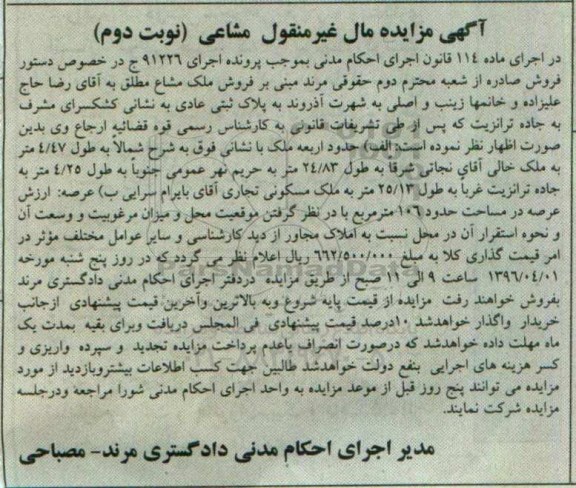 آگهی مزایده مال غیرمنقول مشاعی (نوبت دوم)
در اجرای ماده ۱۱۴ قانون اجرای احکام مدنی بموجب پرونده اجرای ۹۱۲۲۶ ج در خصوص دستور
فروش صادره از شعبه محترم دوم حقوقی مرند مبنی بر فروش ملک مشاع مطلق به آقای رضا حاج
علیزاده و خانمها زینب و اصلی به شهرت آذروند به پلاک ثبتی عادی به نشانی کشکسرای مشرف
به جاده ترانزیت که پس از طی تشریفات قانونی به کارشناس رسمی قوه قضائیه ارجاع وی بدین
صورت اظهار نظر نموده است: الف) حدود اربعه ملک با نشانی فوق به شرح شمالاً به طول ۴/۴۷ متر
به ملک خالی آقای نجاتی شرقاً به طول ۲۴/۸۳ متر به حریم نهر عمومی جنوباً به طول ۴/۲۵ متر به
جاده ترانزیت غرباً به طول ۲۵/۱۳ متر به ملک مسکونی تجاری آقای بایرام سرایی ب) عرصه: ارزش
عرصه در مساحت حدود ۱۰۶ مترمربع با در نظر گرفتن موقعیت محل و میزان مرغوبیت و وسعت آن
و نحوه استقرار آن در محل نسبت به املاک مجاور از دید کارشناسی و سایر عوامل مختلف مؤثر در
امر قیمت گذاری کلا به مبلغ ۶۶۲/۵۰۰/۰۰۰ ریال اعلام نظر می گردد که در روز پنج شنبه مورخه
۱۳۹۶/۰۴/۰۱ ساعت ۹ الی ۱۱ صبح از طریق مزایده دردفتر اجرای احکام مدنی دادگستری مرند
بفروش خواهند رفت مزایده از قیمت پایه شروع وبه بالاترین وآخرین قیمت پیشنهادی ازجانب
خریدار واگذار خواهدشد ۱۰درصد قیمت پیشنهادی فی المجلس دریافت وبرای بقیه بمدت یک
ماه مهلت داده خواهدشد که درصورت انصراف یاعدم پرداخت مزایده تجدید و سپرده واریزی و
کسر هزینه های اجرایی بنفع دولت خواهدشد طالبین جهت کسب اطلاعات بیشتروبازدید از مورد
مزایده می توانند پنج روز قبل از موعد مزایده به واحد اجرای احکام مدنی شورا مراجعه ودرجلسه
مزایده شرکت نمایند.
مدیر اجرای احکام مدنی دادگستری مرند- مصباحی
ParsNamadData